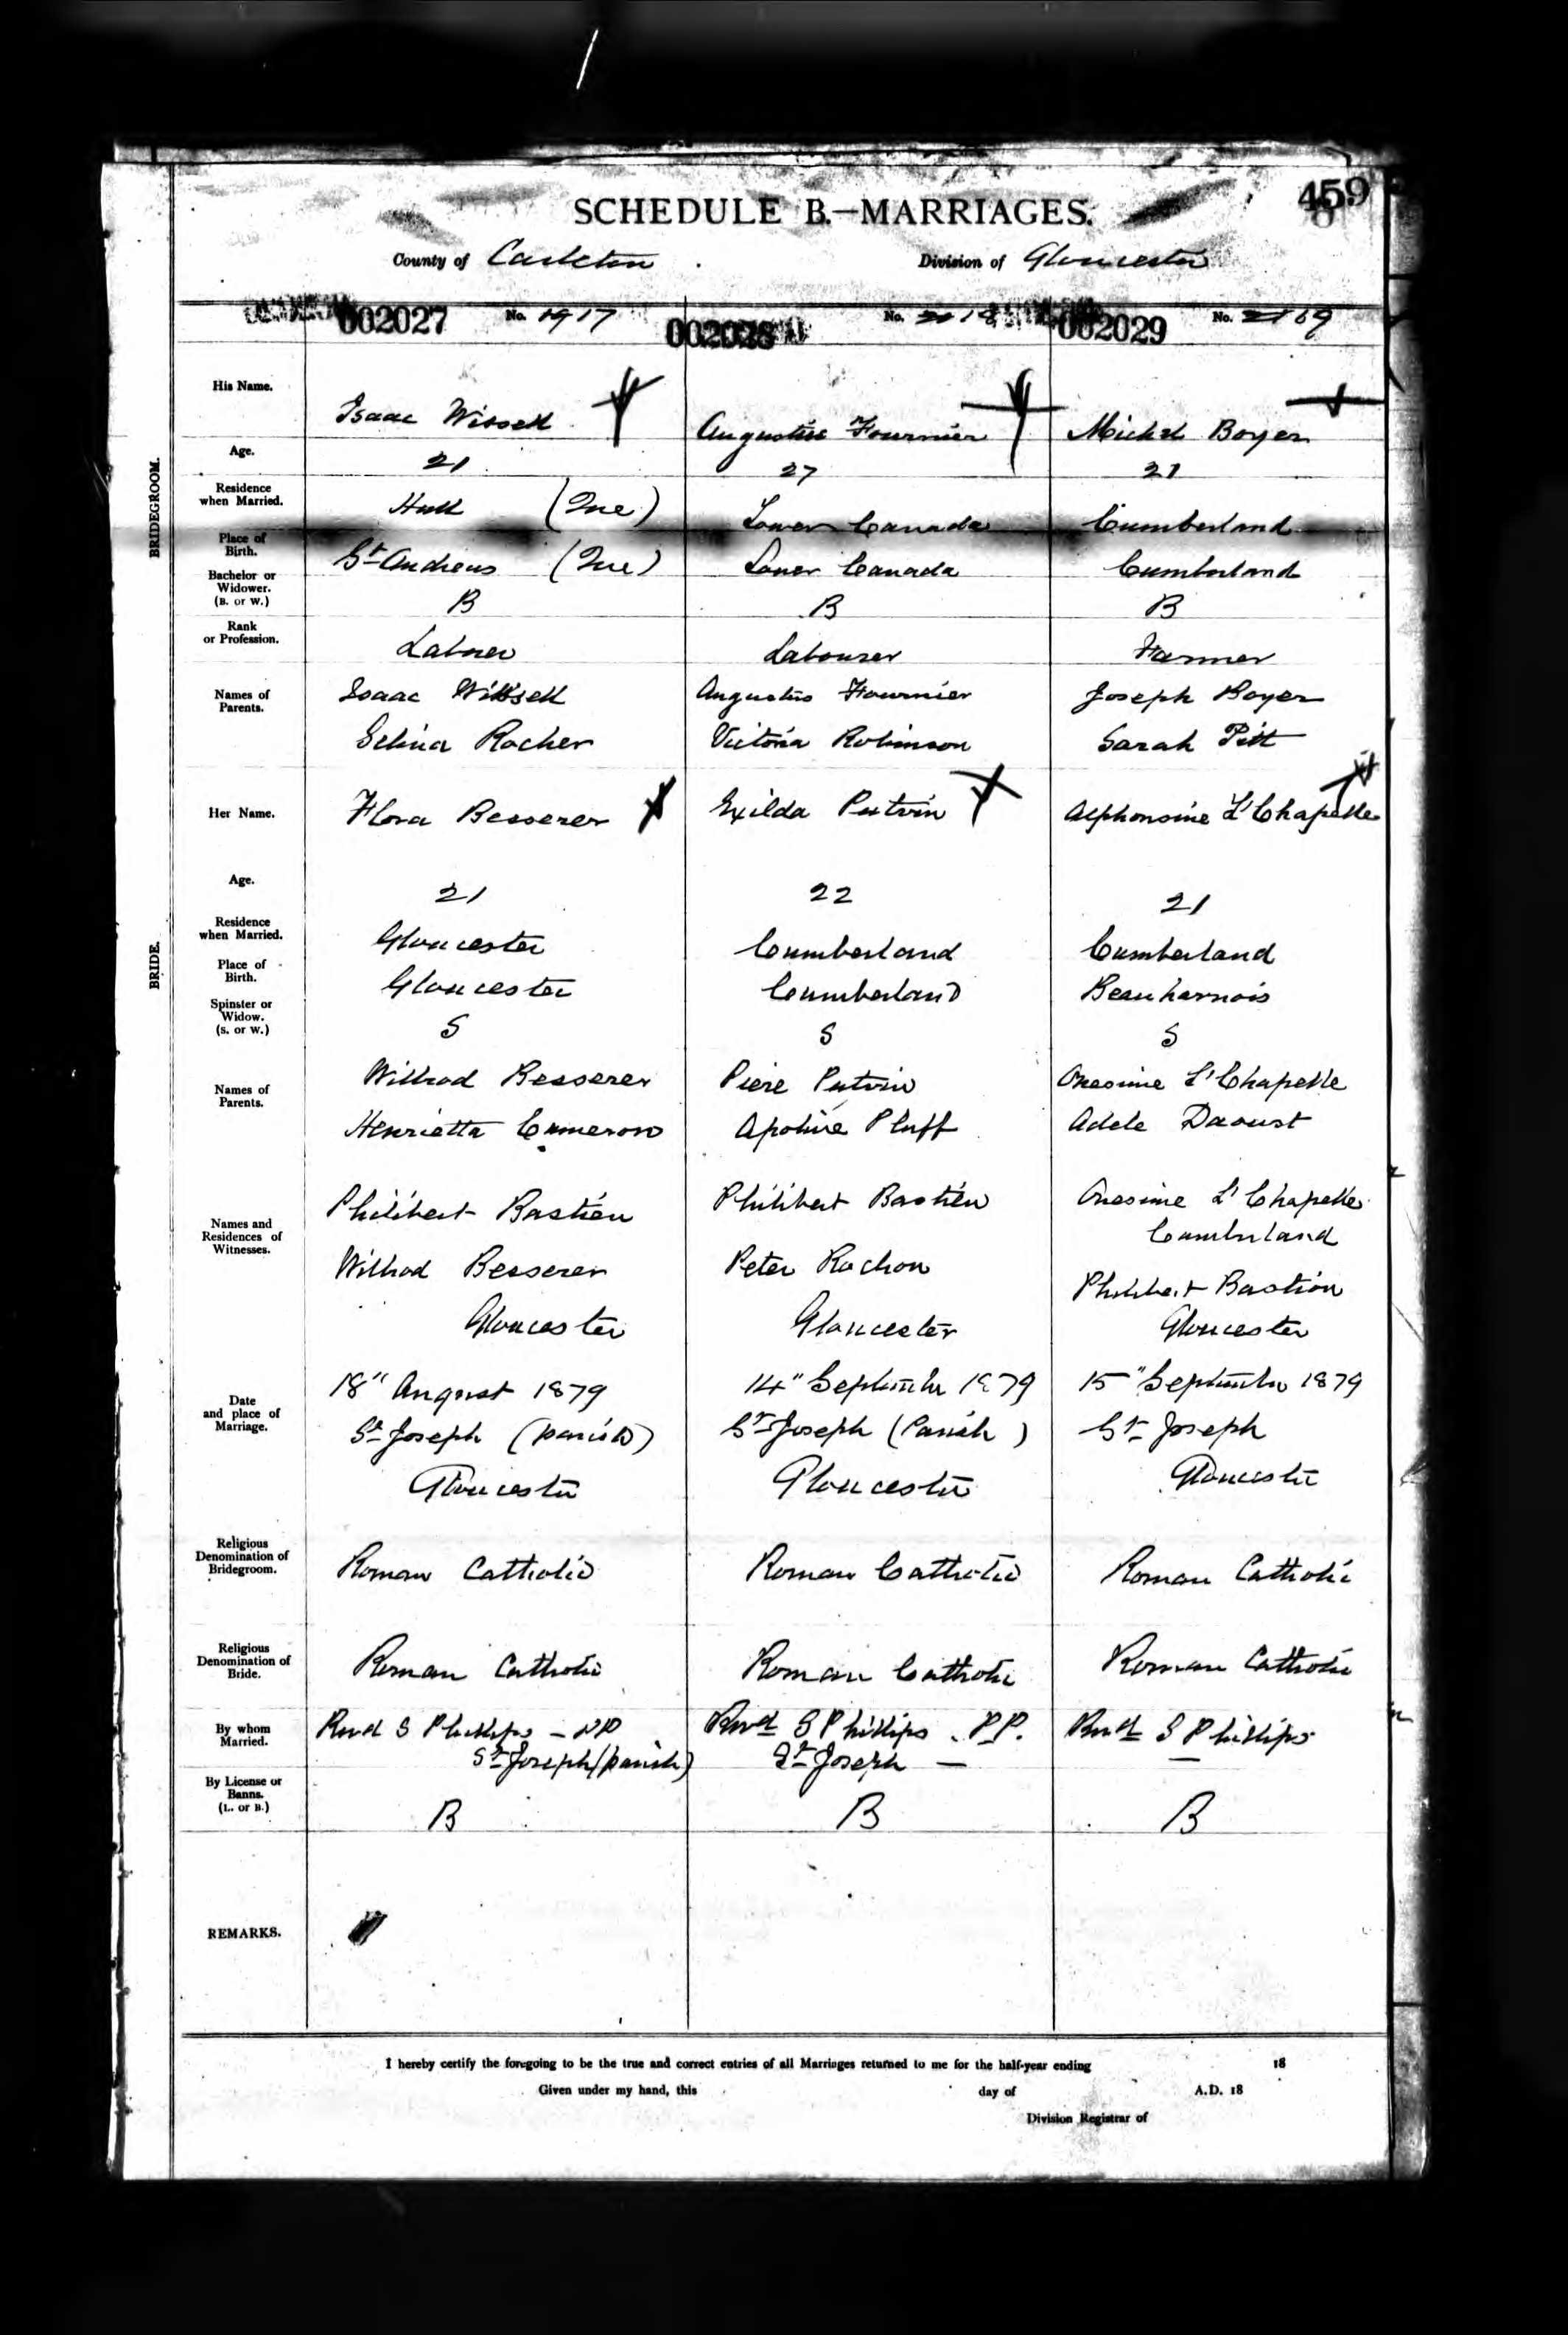 459
SCHEDULE B.—MARRIAGES.
County of Carleton Division of Gloucester
002027 No. 17 No. 18 002029 No.
BRIDEGROOM.
His Name. Isaac Wissell Augustus Fournier Michel Boyer
Age. 21 27 21
Residence when Married. Hull (Que) Lower Canada Cumberland
Place of Birth. St Andrews (Que) Lower Canada Cumberland
Bachelor or Widower. (B. or W.) B B B
Rank or Profession. Labourer Farmer
Names of Parents. Isaac Augustus Fournier Joseph Boyer
Selina Rocher Victoria Robinson Sarah Pitt
BRIDE.
Her Name. Flora Besserer Exilda Putvin Alphonsine L'Chapelle
Age. 21 22 21
Residence when Married. Gloucester Cumberland Cumberland
Place of Birth. Gloucester Cumberland Beauharnois
Spinster or Widow. (S. or W.) S S S
Names of Parents. Wilbrod Besserer Piere Putvin Onesime L'Chapelle
Henrietta Cameron Apoline Pluff Adele Daoust
Names and Residences of Witnesses. Philibert Bastien Philibert Bastien Onesime L'Chapelle
Cumberland
Wilbrod Besserer Peter Rochon Philibert Bastien
Gloucester Gloucester Gloucester
Date and place of Marriage. 18" August 1879 14" September 1879 15" September 1879
St Joseph (parish) St Joseph (Parish) St Joseph
Gloucester Gloucester Gloucester
Religious Denomination of Bridegroom. Roman Catholic Roman Catholic Roman Catholic
Religious Denomination of Bride. Roman Catholic Roman Catholic Roman Catholic
By whom Married. Revd S Phillips – PP Revd S Phillips . P.P. Revd S Phillips
St Joseph (parish) St Joseph — —
By License or Banns. (L. or B.) B B B
REMARKS.
I hereby certify the foregoing to be the true and correct entries of all Marriages returned to me for the half-year ending 18
Given under my hand, this day of A.D. 18
Division Registrar of